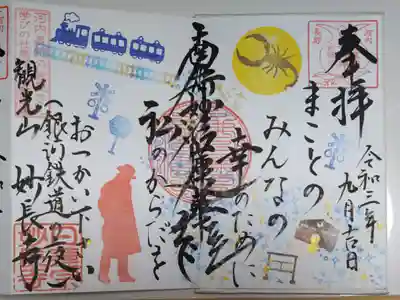 奉拝
令和三年九月吉日
まことの
みんなの
幸のために
南無妙法蓮華経
私のからだを
おつかい下さい
(銀河鉄道の夜)
観光山 妙長寺